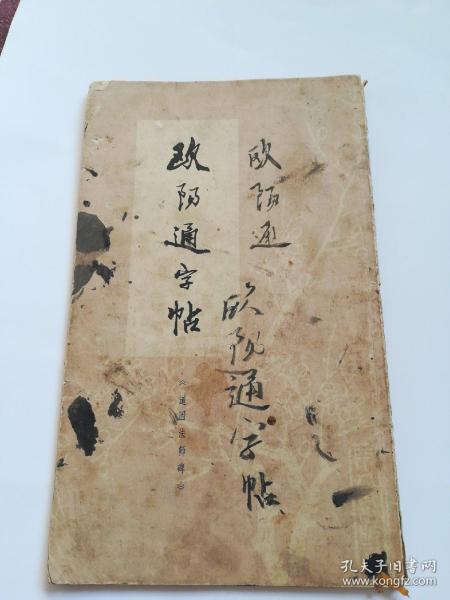 欧阳通字帖
《道因法师碑》
欧阳通
欧阳通字帖
孔夫子旧书网
www.kongfz.com